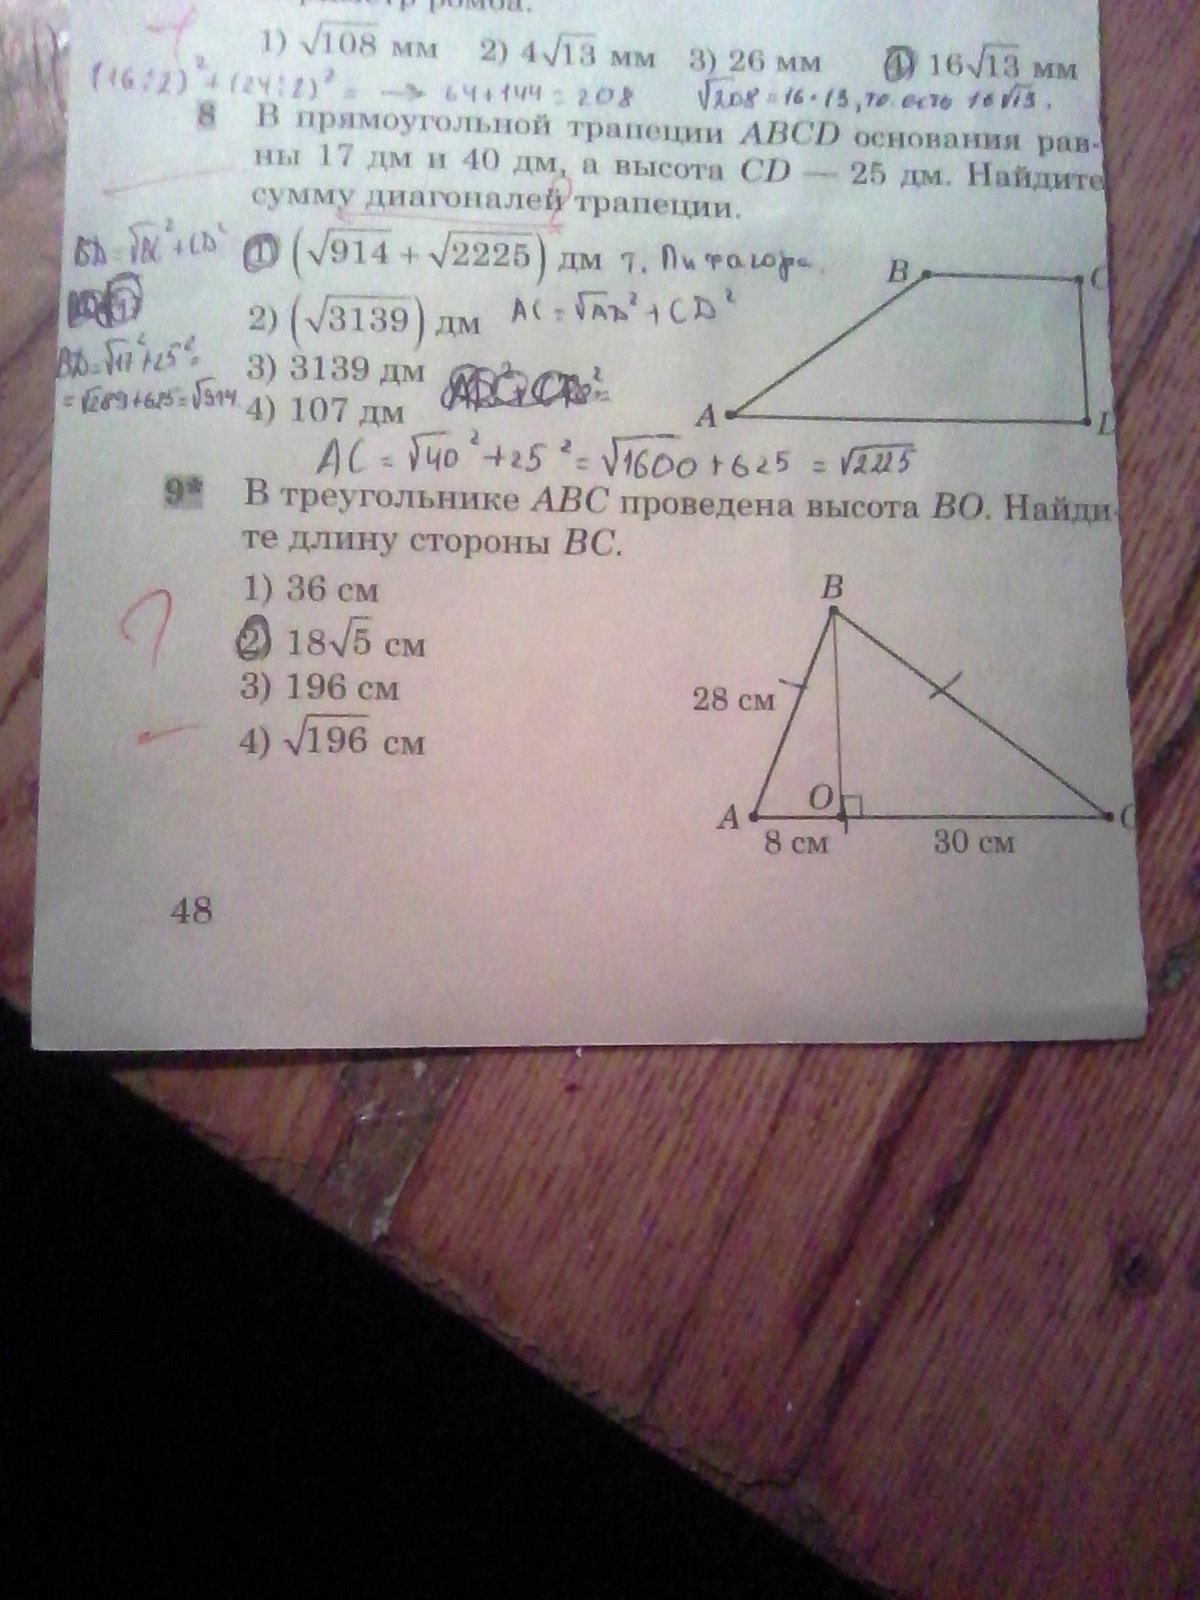 1) √108 мм 2) 4√13 мм 3) 26 мм 4) 16√13 мм
(16:2)² + (24:2)² = → 64+144=208 √208=16·13, то есть 16√13.
8 В прямоугольной трапеции ABCD основания рав-
ны 17 дм и 40 дм, а высота CD — 25 дм. Найдите
сумму диагоналей трапеции.
BD=√BC²+CD²
1) (√914 + √2225) дм т. Пифагора.
2) (√3139) дм AC=√AD²+CD²
BD=√17²+25²=
=√289+625=√914
3) 3139 дм
4) 107 дм
AC=√40²+25²=√1600+625=√2225
B
C
A
9* В треугольнике ABC проведена высота BO. Найди-
те длину стороны BC.
1) 36 см
2) 18√5 см
3) 196 см
4) √196 см
?
B
28 см
A
O
C
8 см
30 см
48